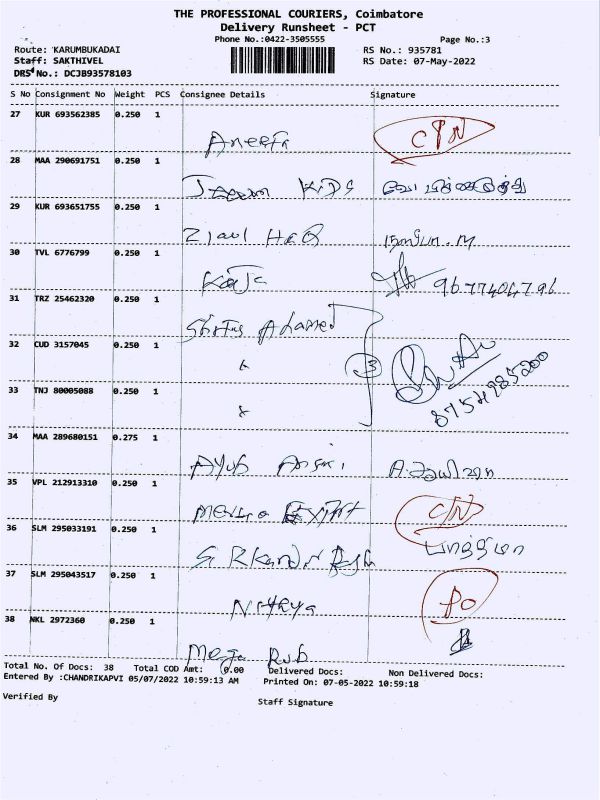 THE PROFESSIONAL COURIERS, Coimbatore
Delivery Runsheet - PCT
Phone No.:0422-3505555 Page No.:3
Route: KARUMBUKADAI RS No.: 935781
Staff: SAKTHIVEL RS Date: 07-May-2022
DRS No.: DCJB93578103
S No Consignment No Weight PCS Consignee Details Signature
27 KUR 693562385 0.250 1
CIN
28 MAA 290691751 0.250 1
KIDS
29 KUR 693651755 0.250 1
Ziaul HaQ
30 TVL 6776799 0.250 1
Raja
31 TRZ 25462320 0.250 1
Ahamed
32 CUD 3157045 0.250 1
3
33 TNJ 80005088 0.250 1
34 MAA 289680151 0.275 1
Ayub
35 VPL 212913310 0.250 1
36 SLM 295033191 0.250 1
பாத்திமா
37 SLM 295043517 0.250 1
Nithya
PO
38 NKL 2972360 0.250 1
Mega
Total No. Of Docs: 38 Total COD Amt: 0.00 Delivered Docs: Non Delivered Docs:
Entered By :CHANDRIKAPVI 05/07/2022 10:59:13 AM Printed On: 07-05-2022 10:59:18
Verified By
Staff Signature